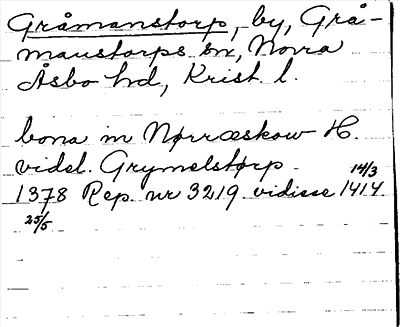 Gråmanstorp, by, Grå-
manstorps sn, Norra
Åsbo hd, Krist. l.
bona in Nørræskow H.
videl. Grymelstørp
14/3
1378 Rep. nr 3219 vidisse 1414
25/5